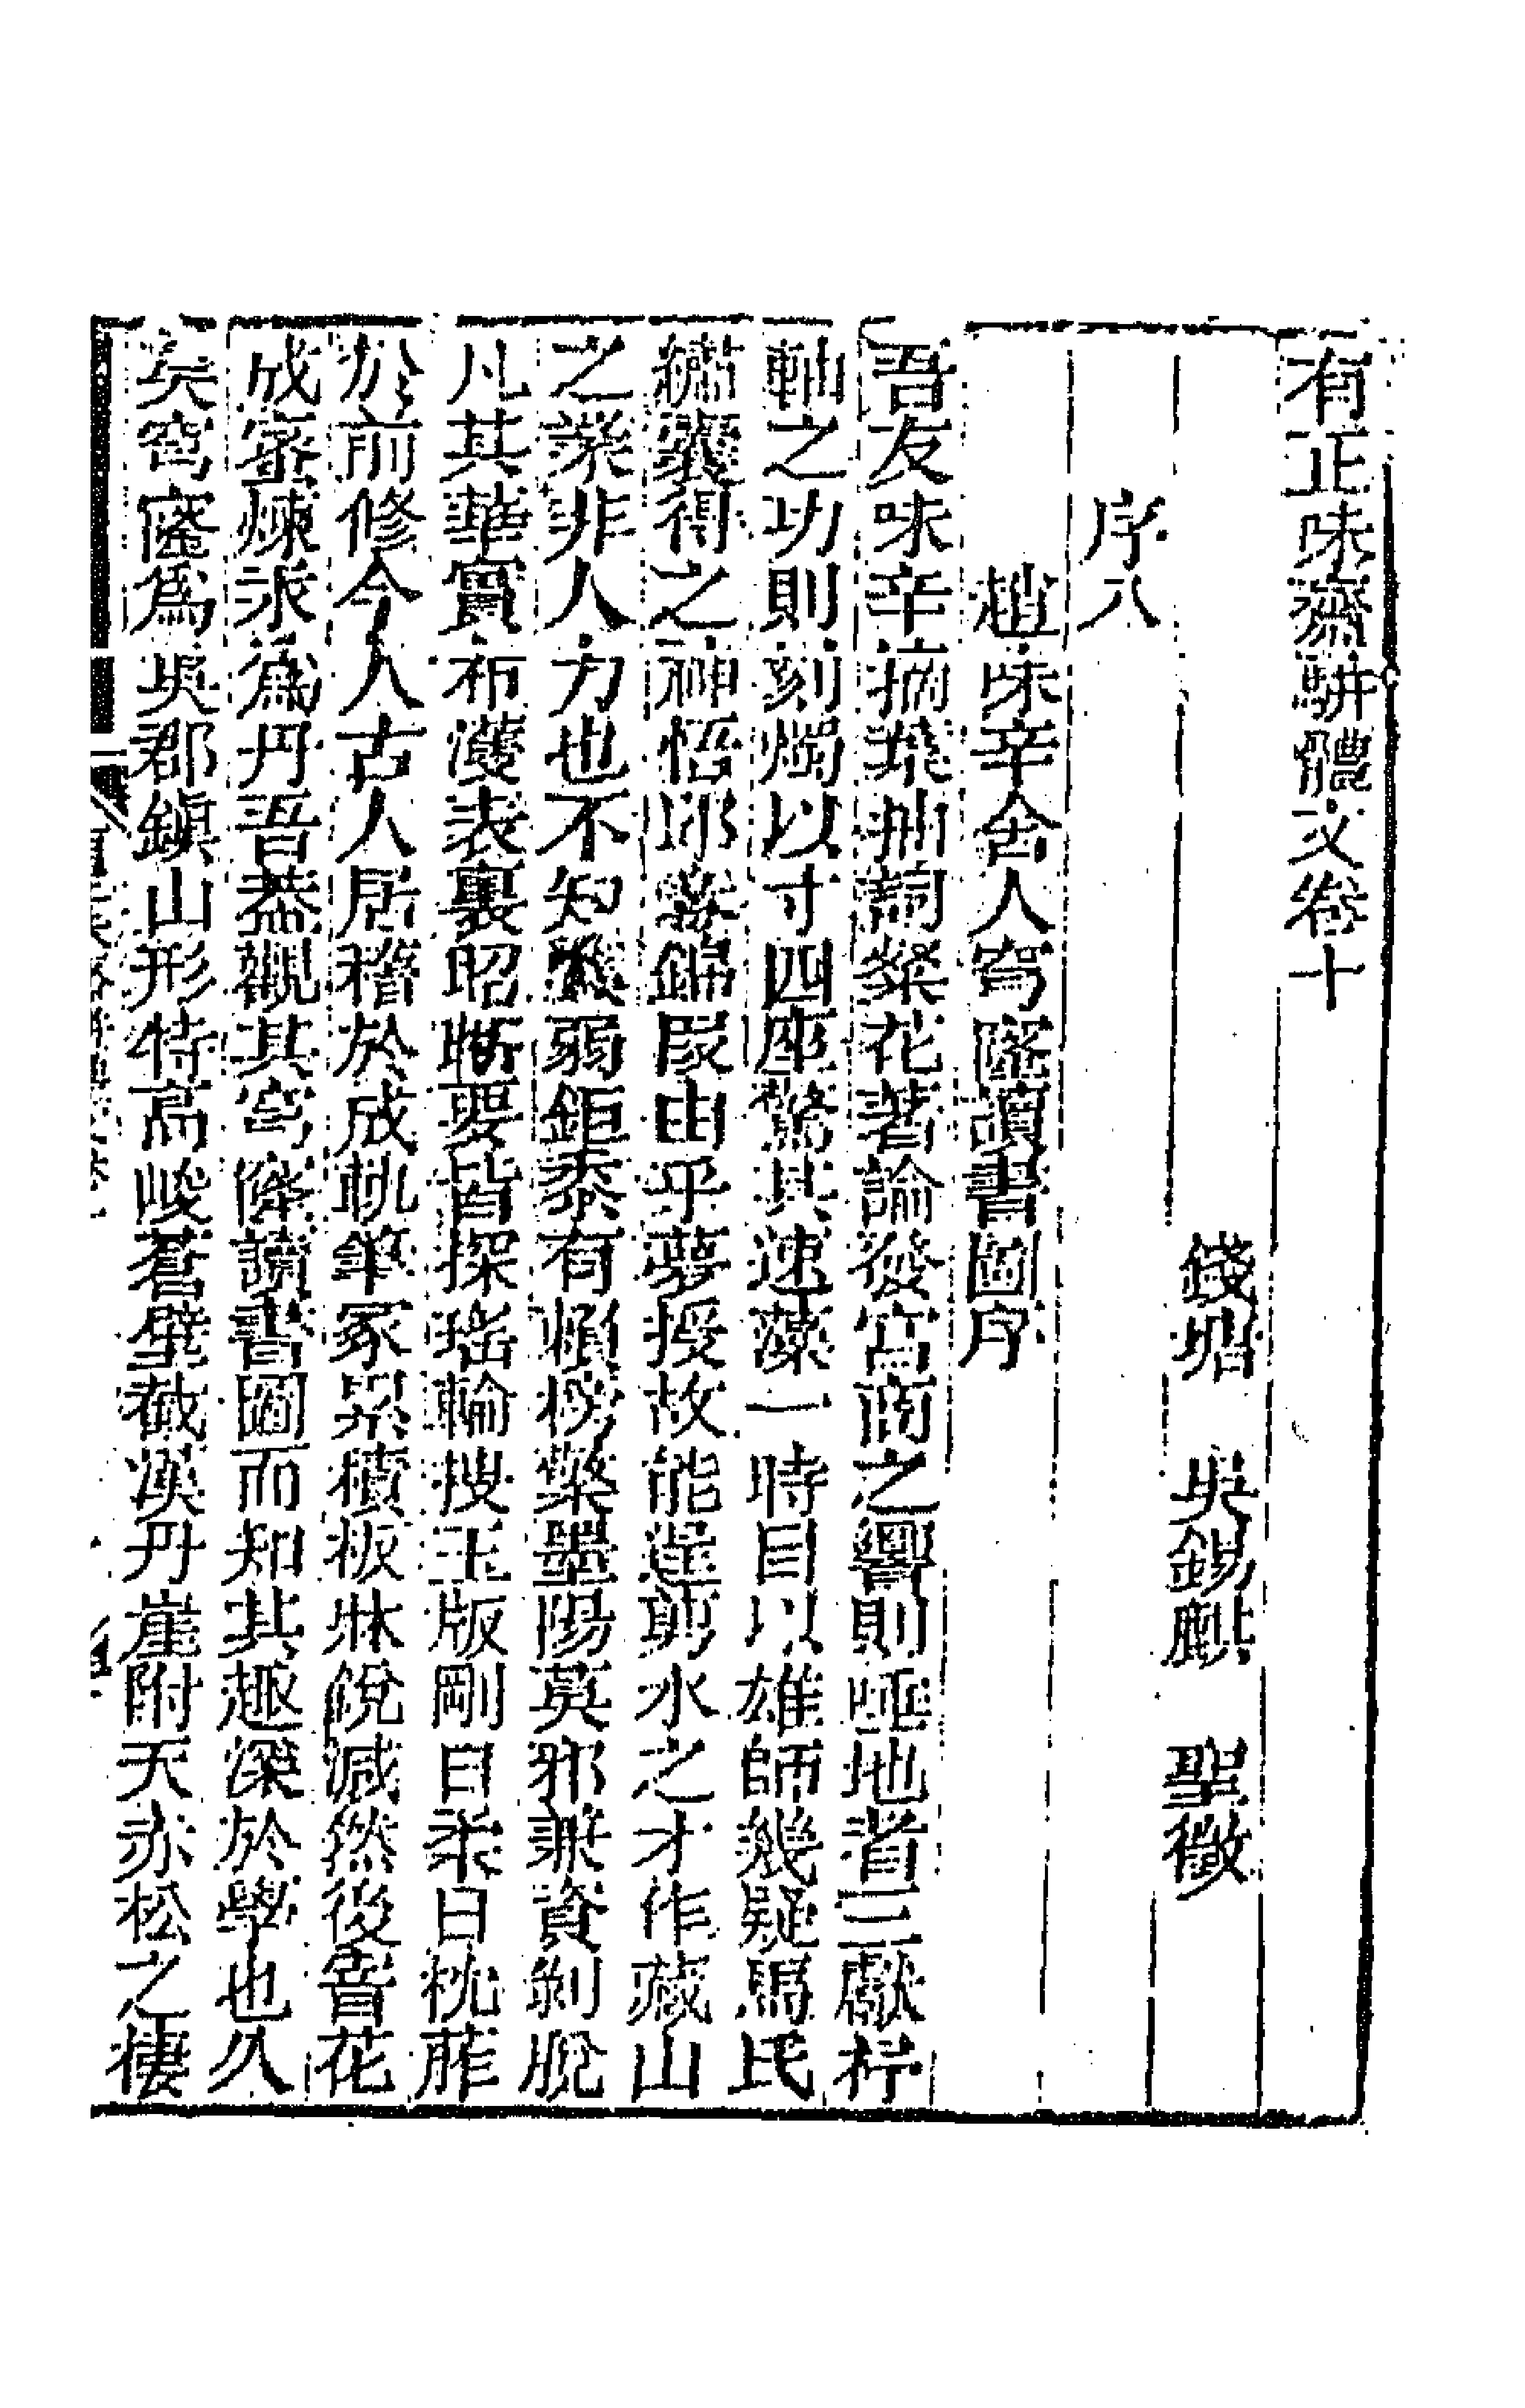 有正味齋駢體文卷十
錢塘　吳錫麒　聖徵
序八
趙味辛舍人穹窿讀書圖序
吾友味辛摛葉抽詞粲花著論發宮商之響則唾地者三獻杼
軸之功則刻燭以寸四座驚其速藻一時目以雄師幾疑馬氏
繡囊得之神悟邱遲錦段由乎夢授故能運剪水之才作藏山
之業非人力也不知飛弱鉅黍有賴榜檠墨陽莫邪兼資剝脫
凡其華實布濩表裏昭晣要皆探瑤輪搜玉版剛日柔日枕葄
於前修今人古人居稽於成軌筆冢累積板牀銳減然後釀花
成蜜煉汞爲丹吾葢觀其穹窿讀書圖而知其趣深於學也久
矣穹窿爲吳郡鎭山形特高峻蒼壁截漢丹崖附天赤松之棲